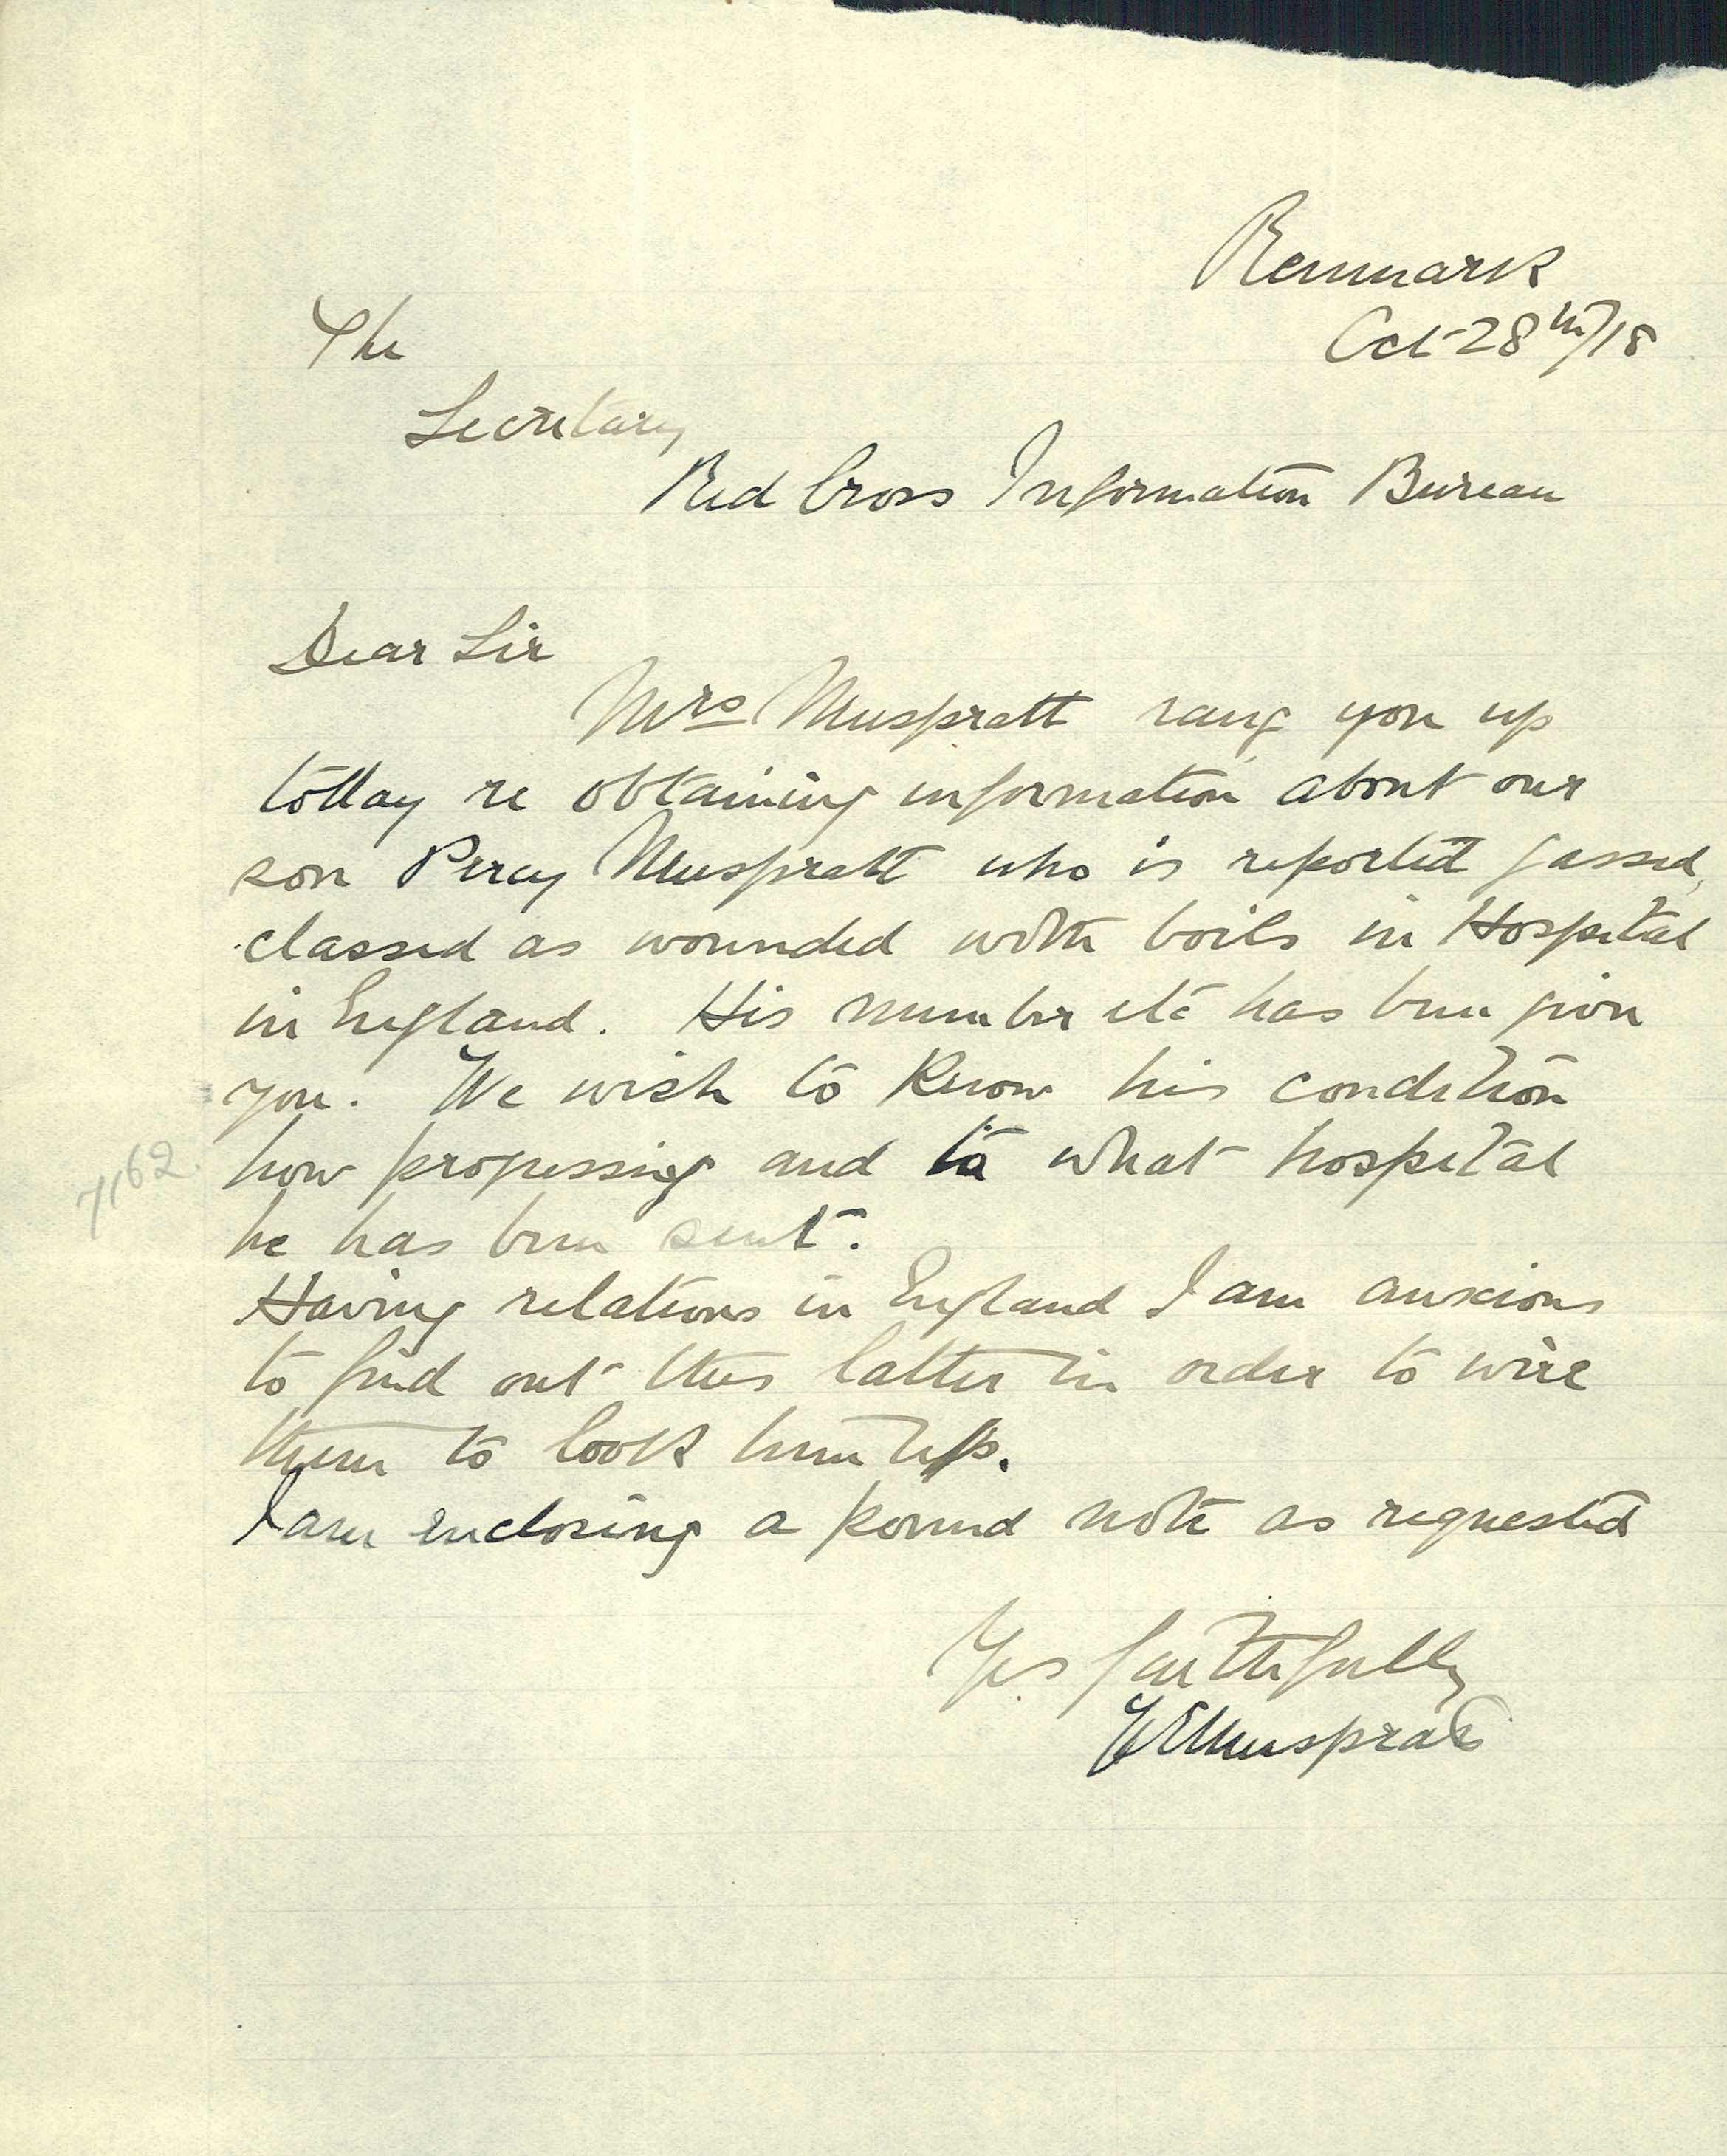 Renmark
Oct 28th/18
The
Secretary
Red Cross Information Bureau
Dear Sir
Mrs Muspratt rang you up
today re obtaining information about our
son Percy Muspratt who is reported gassed,
classed as wounded with boils in Hospital
in England. His number etc has been given
you. We wish to know his condition
how progressing and to what hospital
he has been sent.
Having relations in England I am anxious
to find out this latter in order to wire
them to look him up.
I am enclosing a pound note as requested
Yrs faithfully
Muspratt
7162.